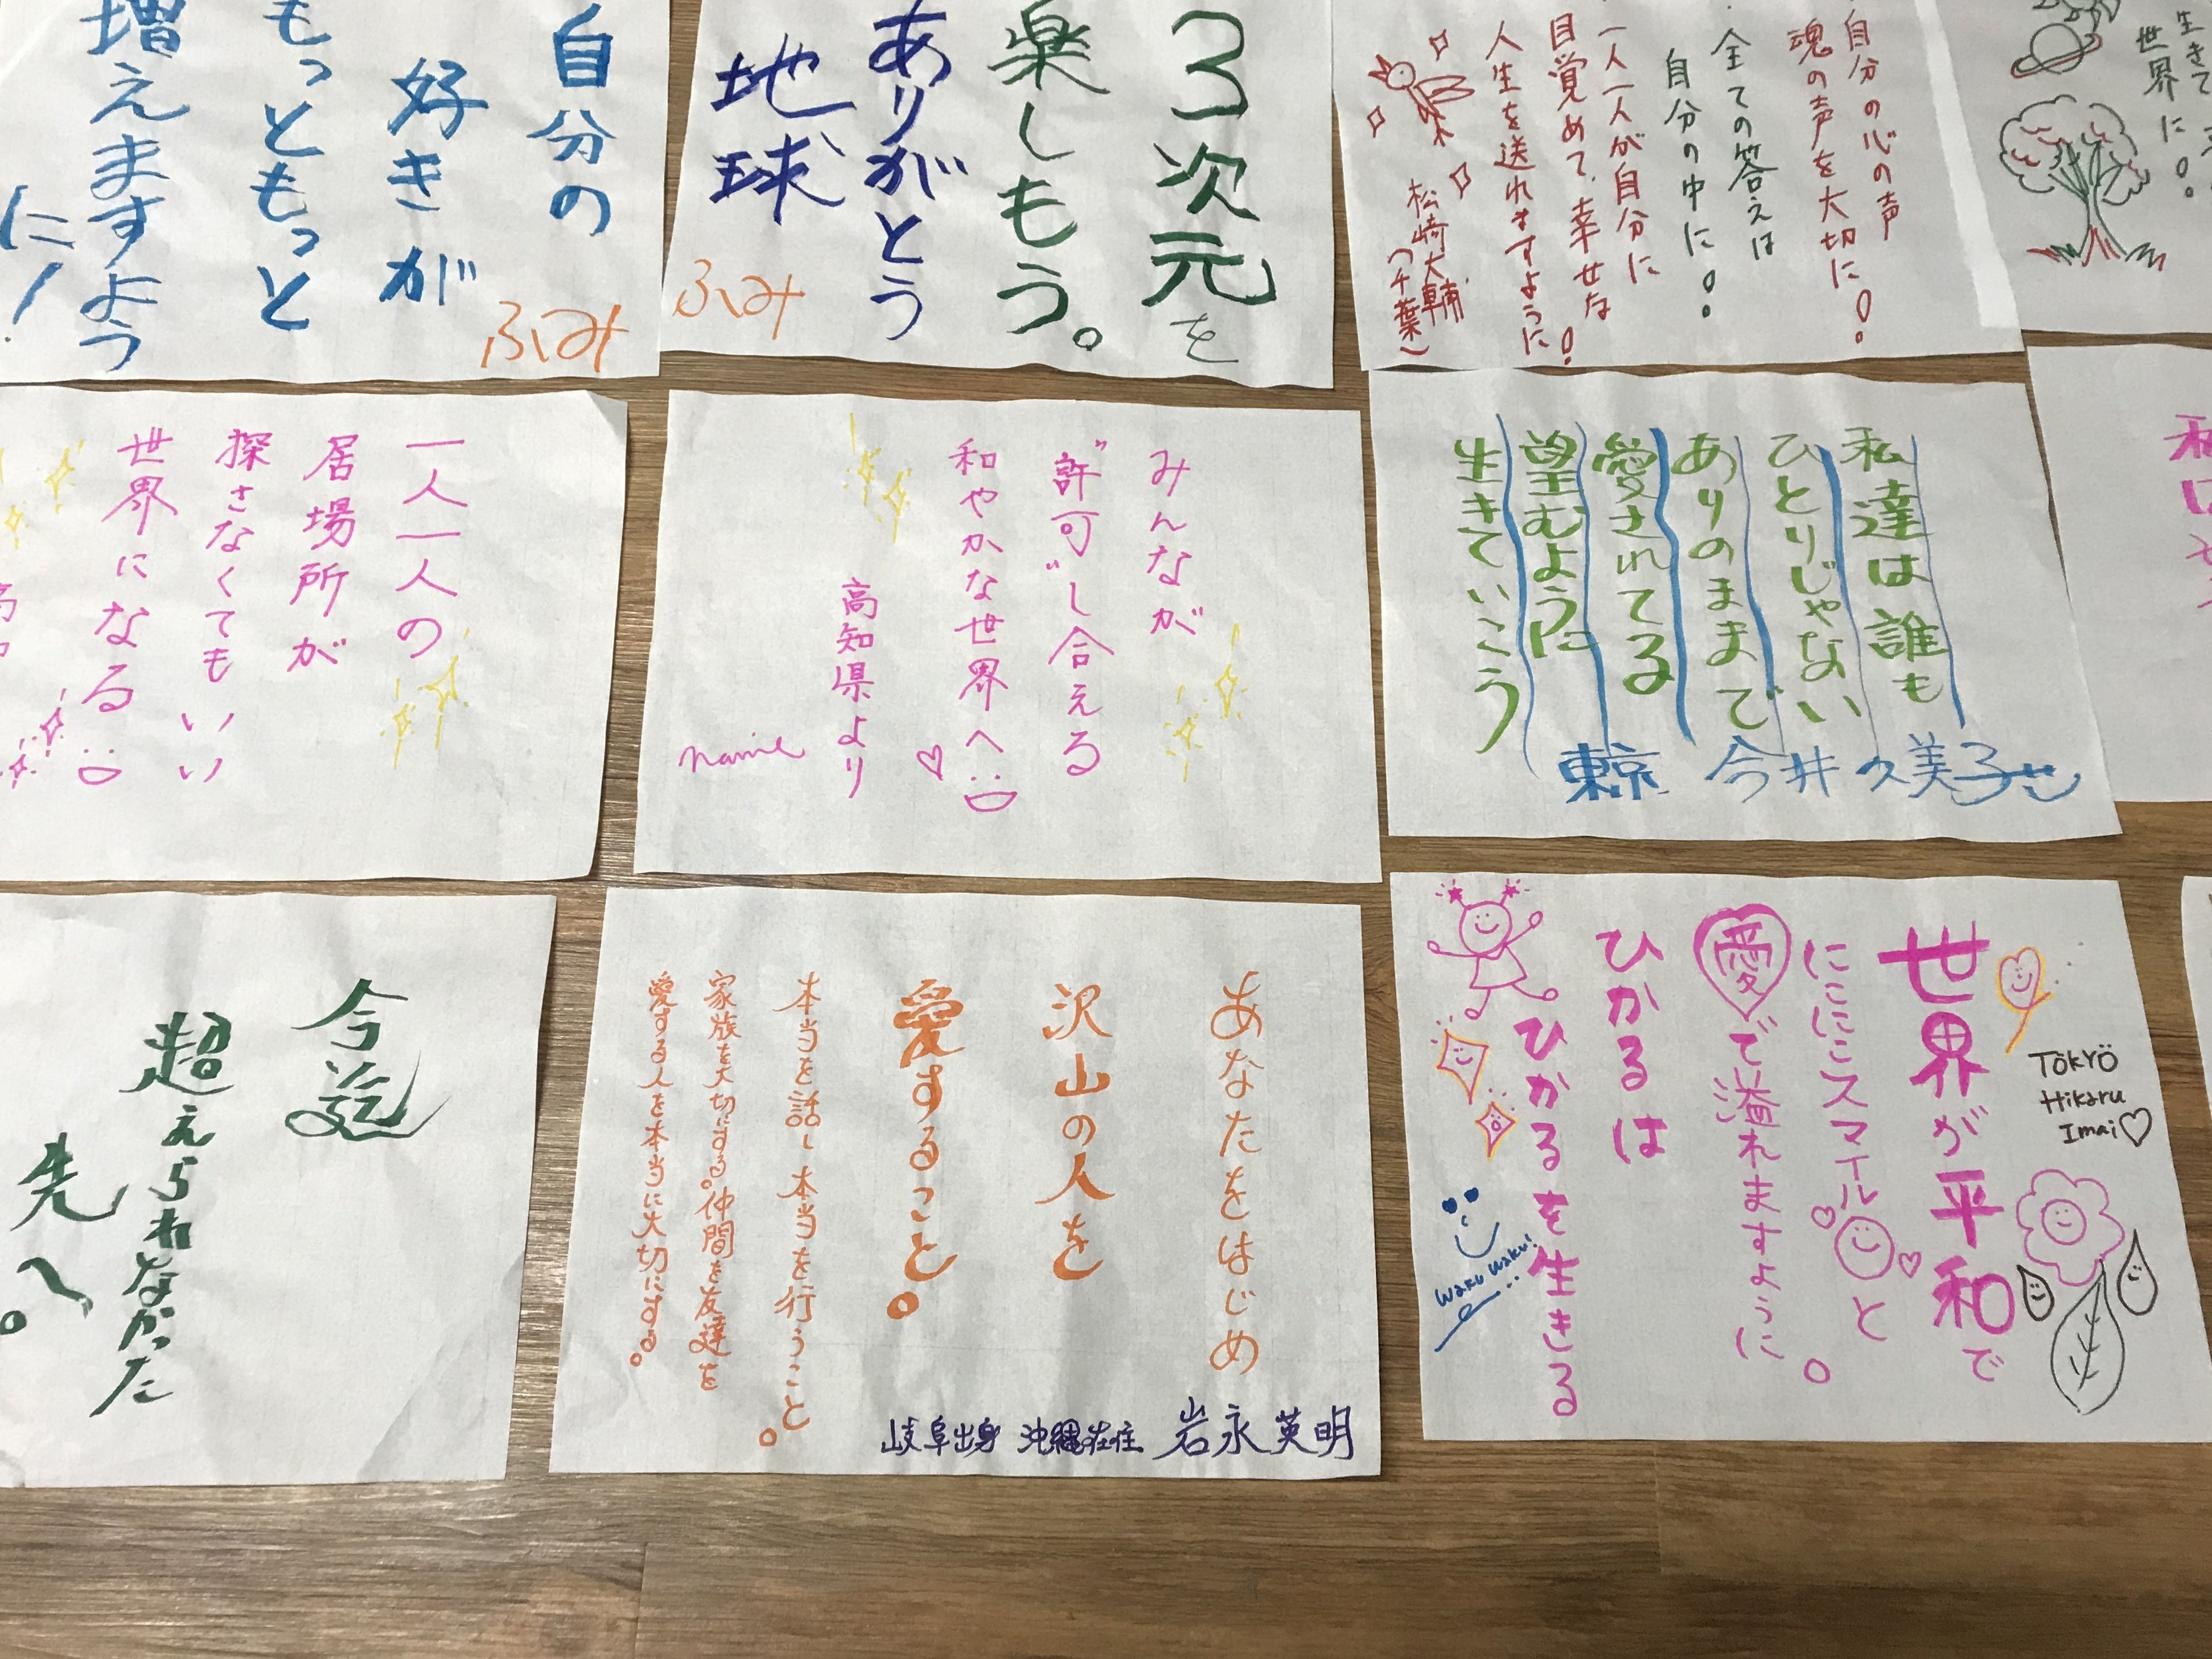 自分の
好きが
もっともっと
増えますよう
に！
ふみ
3次元を
楽しもう。
ありがとう
地球
ふみ
自分の心の声
魂の声を大切に！。
全ての答えは
自分の中に！。
一人一人が自分に
目覚めて、幸せな
人生を送れますように！。
松崎大輔
(千葉)
生きて
世界に！。
一人一人の
居場所が
探さなくてもいい
世界になる
みんなが
"許可"し合える
和やかな世界へ
高知県より
namie
私達は誰も
ひとりじゃない
ありのままで
愛されてる
望むように
生きていこう
東京 今井久美子
私は
今迄
超えられなかった
先へ。
あなたをはじめ
沢山の人を
愛すること。
本当を話し本当を行うこと。
家族を大切にする。仲間を友達を
愛する人を本当に大切にする。
岐阜出身 沖縄在住 岩永英明
世界が平和で
にこにこスマイルと
愛で溢れますように。
ひかるは
ひかるを生きる
TōKYö
Hikaru
Imai
waku waku!